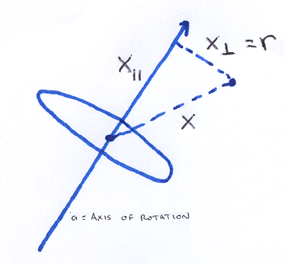 X⊥ = r
X||
X
a = AXIS OF ROTATION